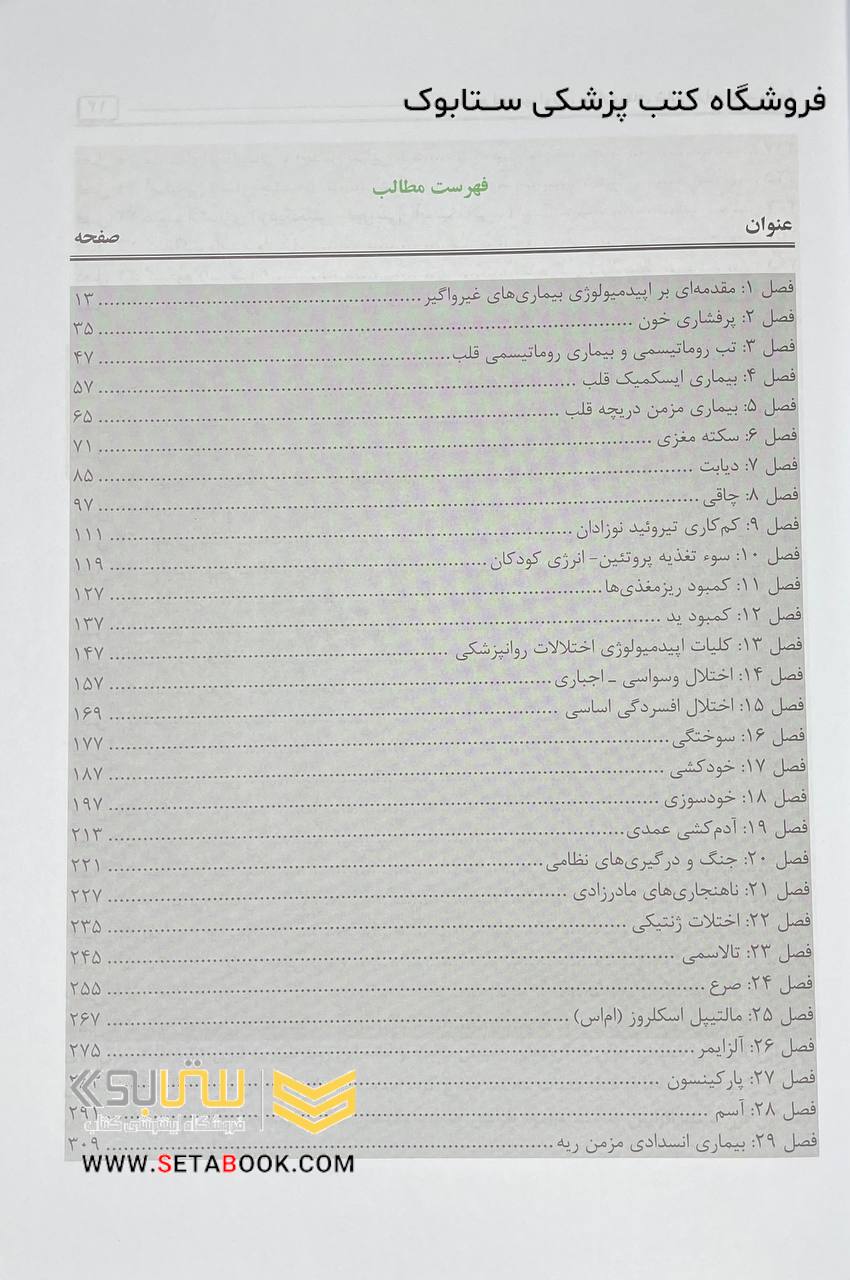 فروشگاه کتب پزشکی ستابوک
۱۲
فهرست مطالب
عنوان صفحه
فصل ۱: مقدمه‌ای بر اپیدمیولوژی بیماری‌های غیرواگیر ۱۳
فصل ۲: پرفشاری خون ۳۵
فصل ۳: تب روماتیسمی و بیماری روماتیسمی قلب ۴۷
فصل ۴: بیماری ایسکمیک قلب ۵۷
فصل ۵: بیماری مزمن دریچه قلب ۶۵
فصل ۶: سکته مغزی ۷۱
فصل ۷: دیابت ۸۵
فصل ۸: چاقی ۹۷
فصل ۹: کم‌کاری تیروئید نوزادان ۱۱۱
فصل ۱۰: سوء تغذیه پروتئین- انرژی کودکان ۱۱۹
فصل ۱۱: کمبود ریزمغذی‌ها ۱۲۷
فصل ۱۲: کمبود ید ۱۳۷
فصل ۱۳: کلیات اپیدمیولوژی اختلالات روانپزشکی ۱۴۷
فصل ۱۴: اختلال وسواسی ـ اجباری ۱۵۷
فصل ۱۵: اختلال افسردگی اساسی ۱۶۹
فصل ۱۶: سوختگی ۱۷۷
فصل ۱۷: خودکشی ۱۸۷
فصل ۱۸: خودسوزی ۱۹۷
فصل ۱۹: آدم‌کشی عمدی ۲۱۳
فصل ۲۰: جنگ و درگیری‌های نظامی ۲۲۱
فصل ۲۱: ناهنجاری‌های مادرزادی ۲۲۷
فصل ۲۲: اختلات ژنتیکی ۲۳۵
فصل ۲۳: تالاسمی ۲۴۵
فصل ۲۴: صرع ۲۵۵
فصل ۲۵: مالتیپل اسکلروز (ام‌اس) ۲۶۷
فصل ۲۶: آلزایمر ۲۷۵
فصل ۲۷: پارکینسون
فصل ۲۸: آسم ۲۹۱
فصل ۲۹: بیماری انسدادی مزمن ریه ۳۰۹
ستابوک
فروشگاه اینترنتی کتاب
WWW.SETABOOK.COM